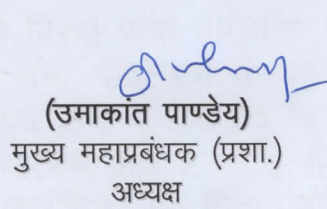 (उमाकांत पाण्डेय)
मुख्य महाप्रबंधक (प्रशा.)
अध्यक्ष